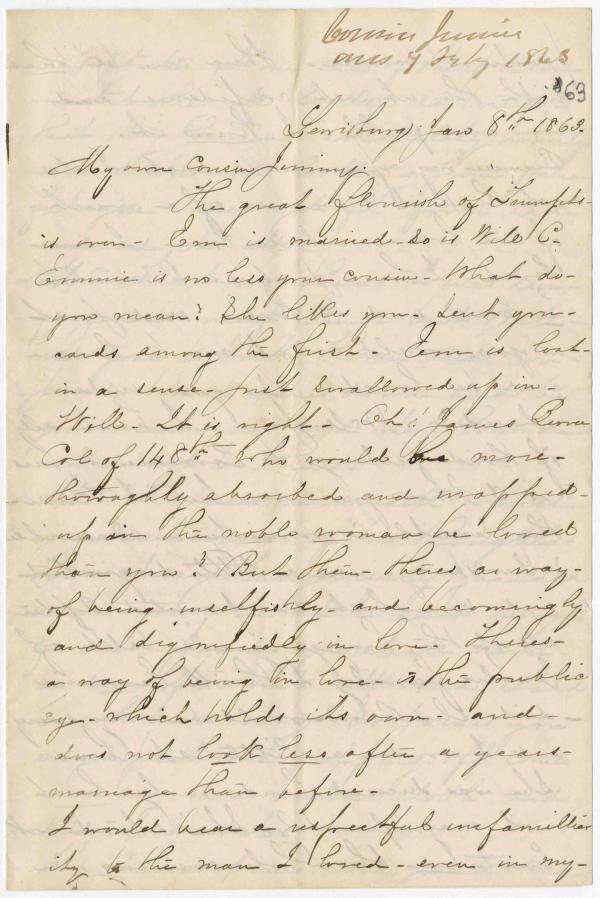 Cousin Jennie
ans 7 Feby 1863
63
Lewisburg Jan 8th 1863.
My own cousin Jimmy.
The great flourish of Trumpets-
is over- Em is married- so is Will C.
Emmie is no less your cousin- What do-
you mean? She likes you- sent you-
cards among the first- Em is lost-
in a sense- just swallowed up in-
Will- It is right- Eh! James Beaver
Col of 148th who would be more-
thoroughly absorbed and wrapped-
up in the noble woman he loved
than you? But then- theres a way-
of being unselfishly- and becomingly
and dignifiedly in love- Theres-
a way of being in love- to the public
eye- which holds its own- and-
does not look less after a years-
marriage than before-
I would bear a respectful unfamiliar
ity to the man I loved- even in my-